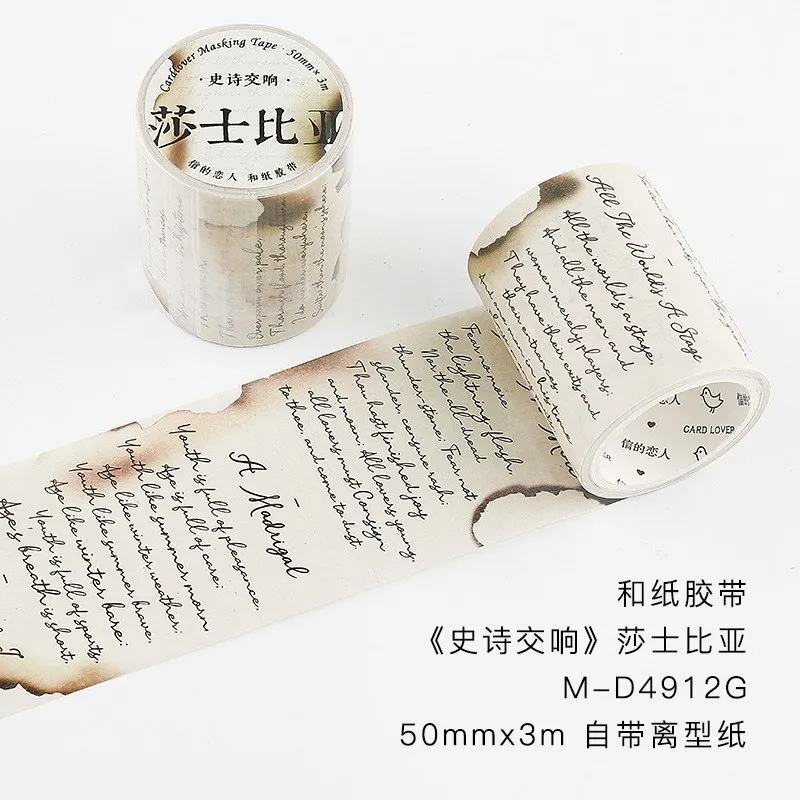 Cardlover Masking Tape · 50mm×3m
·史诗交响·
莎士比亚
信的恋人 和纸胶带
Over park, over pale,
Thorough flood, thorough fire
I do wander everywhere,
Swifter than the moon's sphere
All The World's A Stage
All the world's a stage,
And all the men and
women merely players;
They have their exits and
their entrances,
信的恋人
CARD LOVER
Fear no more
the lightning flash,
Nor the all-dread
thunder-stone; Fear not
slander, censure rash;
Thou hast finished joy
and moan; All lovers young,
all lovers must Consign
to thee, and come to dust.
A Madrigal
Youth is full of pleasance,
Age is full of care;
Youth like summer morn,
Age like winter weather;
Youth like summer brave,
Age like winter bare;
Youth is full of sports,
Age's breath is short,
和纸胶带
《史诗交响》莎士比亚
M-D4912G
50mmx3m 自带离型纸